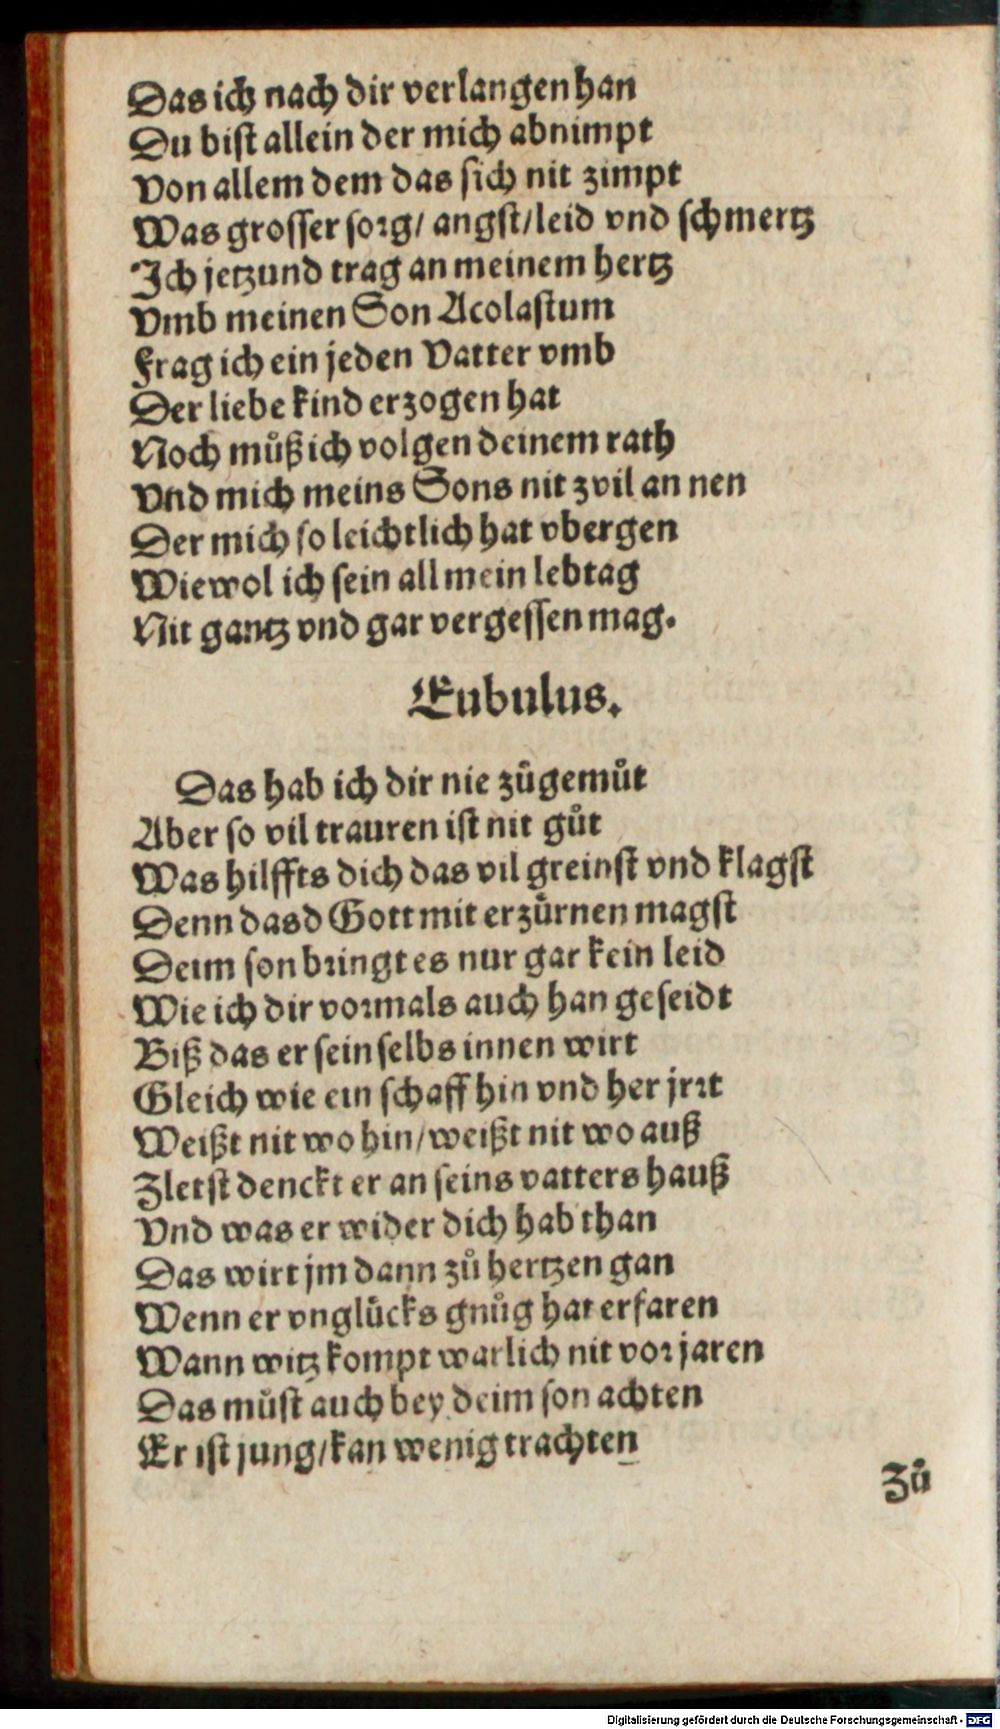 Das ich nach dir verlangen han
Du bist allein der mich abnimpt
Von allem dem das sich nit zimpt
Was grosser sorg/ angst/leid vnd schmertz
Ich jetzund trag an meinem hertz
Vmb meinen Son Acolastum
Frag ich ein jeden Vatter vmb
Der liebe kind erzogen hat
Noch muͤß ich volgen deinem rath
Vnd mich meins Sons nit zvil an nen
Der mich so leichtlich hat vbergen
Wiewol ich sein all mein lebtag
Nit gantz vnd gar vergessen mag.
Eubulus.
Das hab ich dir nie zůgemůt
Aber so vil trauren ist nit gůt
Was hilffts dich das vil greinst vnd klagst
Denn dasd Gott mit erzürnen magst
Deim son bringt es nur gar kein leid
Wie ich dir vormals auch han geseidt
Biß das er sein selbs innen wirt
Gleich wie ein schaff hin vnd her jrrt
Weißt nit wo hin/weißt nit wo auß
Zletst denckt er an seins vatters hauß
Vnd was er wider dich hab than
Das wirt jm dann zů hertzen gan
Wenn er vnglücks gnůg hat erfaren
Wann witz kompt warlich nit vor jaren
Das můst auch bey deim son achten
Er ist jung/kan wenig trachten
Zů
Digitalisierung gefördert durch die Deutsche Forschungsgemeinschaft - DFG